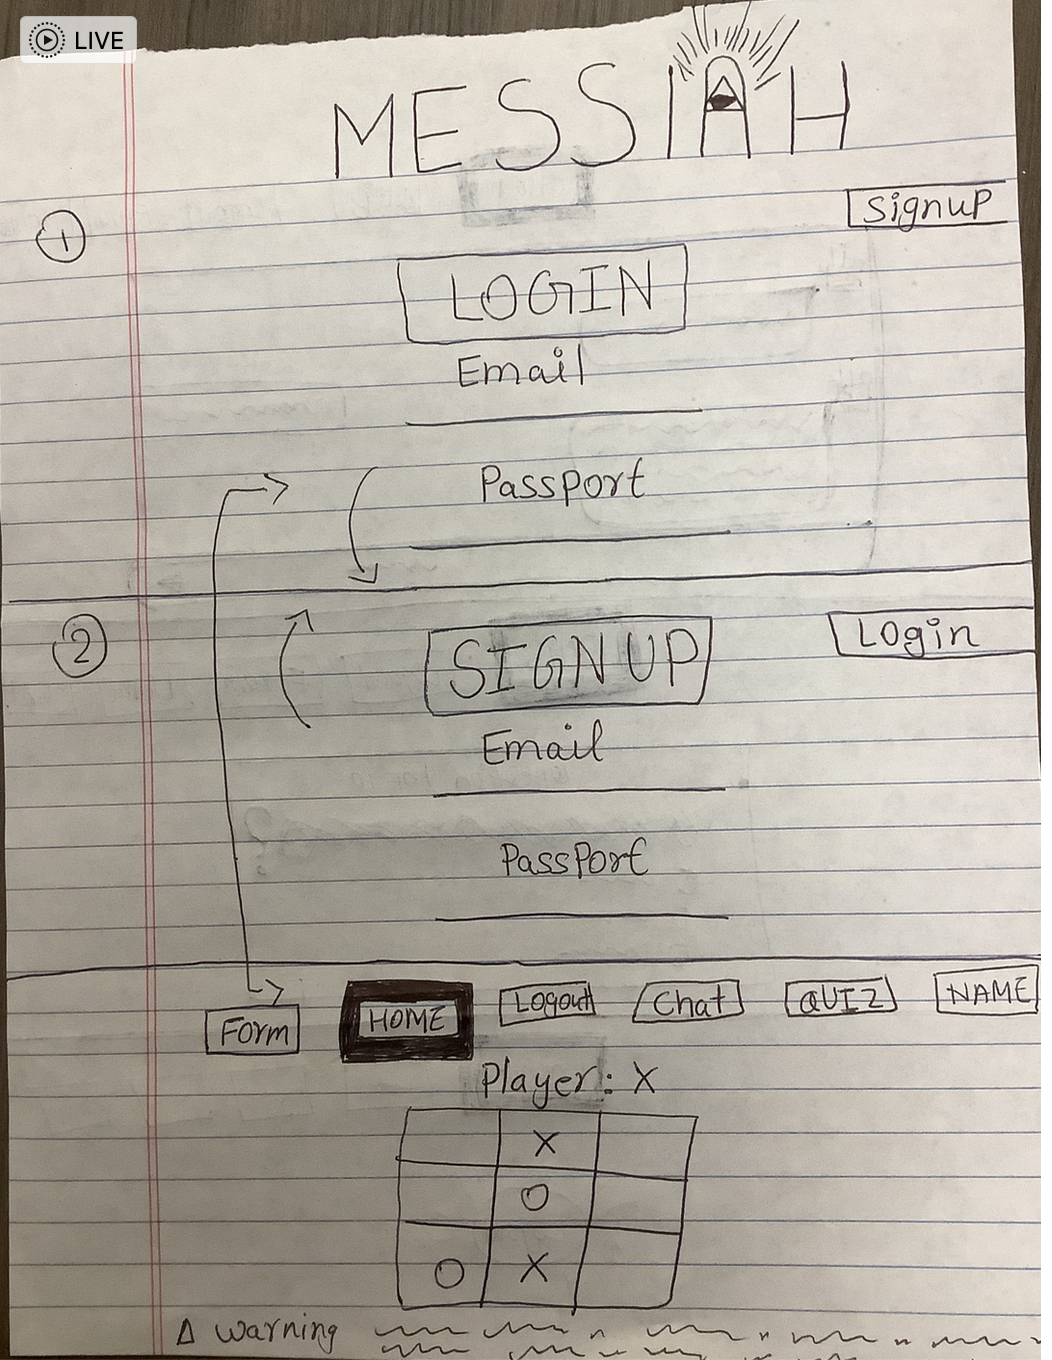 LIVE
MESSIAH
1
Signup
LOGIN
Email
Passport
2
SIGNUP
Login
Email
Passport
Form HOME Logout Chat QUIZ NAME
Player: X
X
O
O X
Δ warning